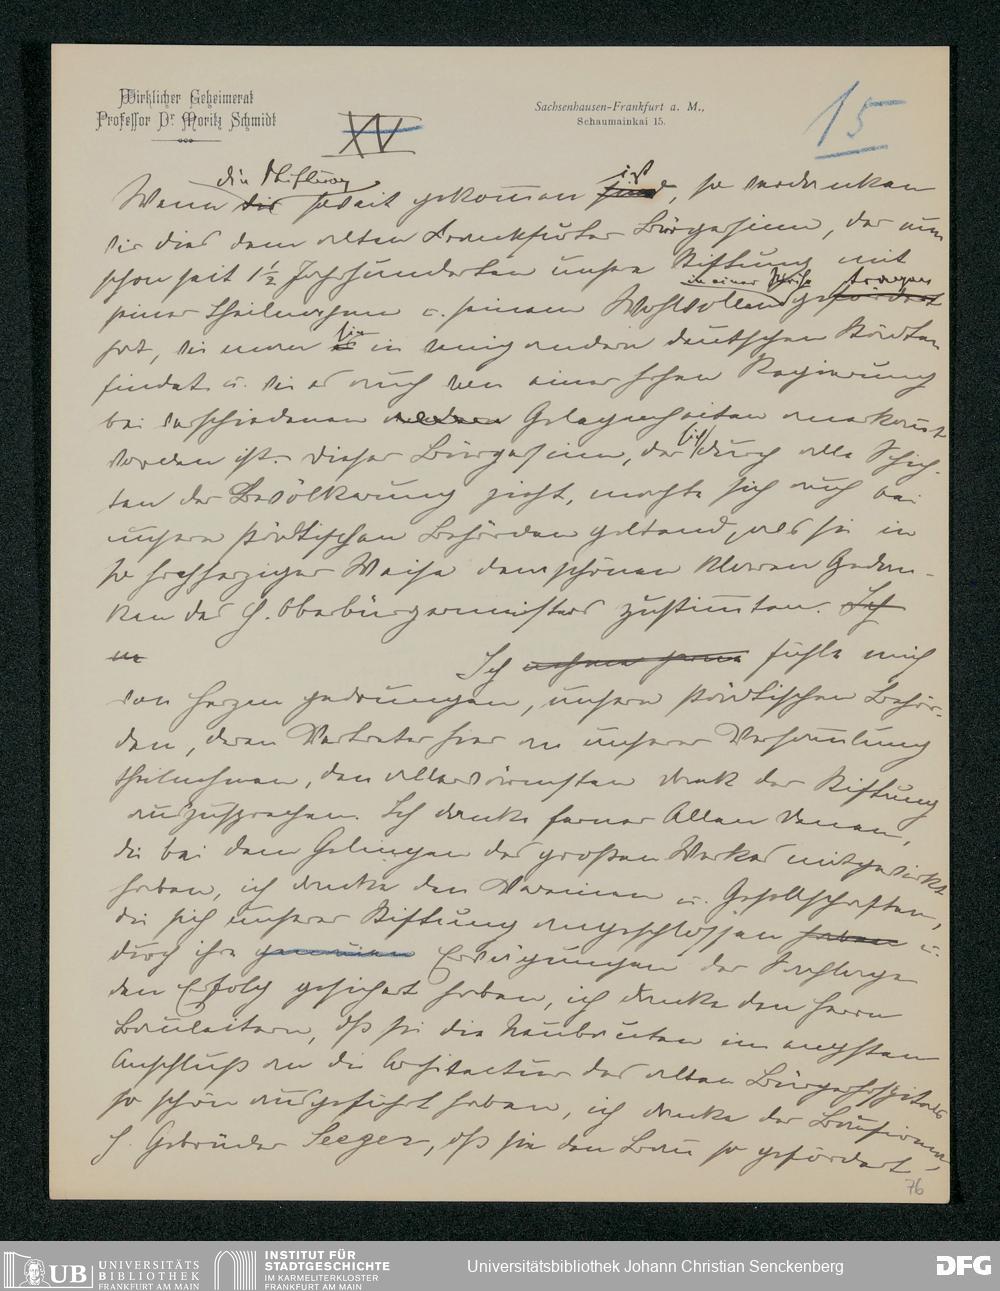 Wirklicher Geheimerat
Professor Dr. Moritz Schmidt
Sachsenhausen-Frankfurt a. M.,
Schaumainkai 15.
XV
15
die Stiftung ist
Wenn wir soweit gekommen sind, so verdanken
wir dies dem alten Frankfurter Bürgersinn, der nun
schon seit 1½ Jahrhunderten unsre Stiftung mit
in einer Weise getragen
seiner Theilnahme u. seinem Wohlwollen gefördert
hat, wie man sie in wenig andern deutschen Städten
findet u. wie es auch von einer hohen Regierung
bei verschiedenen Gelegenheiten anerkannt
worden ist. Dieser Bürgersinn, der sich durch alle Schich-
ten der Bevölkerung zieht, machte sich auch bei
unsern städtischen Behörden geltend, als sie in
so hochherziger Weise dem schönen klaren Gedan-
ken des H. Oberbürgermeisters zustimmten. Ich
Ich fühle mich
von Herzen gedrungen, unsern städtischen Behör-
den, deren Vertreter hier an unserer Versammlung
theilnehmen, den allerwärmsten Dank der Stiftung
auszusprechen. Ich danke ferner Allen denen,
die bei dem Gelingen des großen Werkes mitgewirkt
haben, ich danke den Vereinen u. Gesellschaften,
die sich unserer Stiftung angeschlossen haben u.
durch ihre der
den Erfolg gesichert haben, ich danke den Herrn
Bauleitern, daß sie die Neubauten im engsten
Anschluß an die Architectur des alten Bürgerhospitals
so schön ausgeführt haben, ich danke der Baufirma,
H. Gebrüder Seeger, daß sie den Bau so gefördert
76
UB UNIVERSITÄTS
BIBLIOTHEK
FRANKFURT AM MAIN
INSTITUT FÜR
STADTGESCHICHTE
IM KARMELITERKLOSTER
FRANKFURT AM MAIN
Universitätsbibliothek Johann Christian Senckenberg
DFG